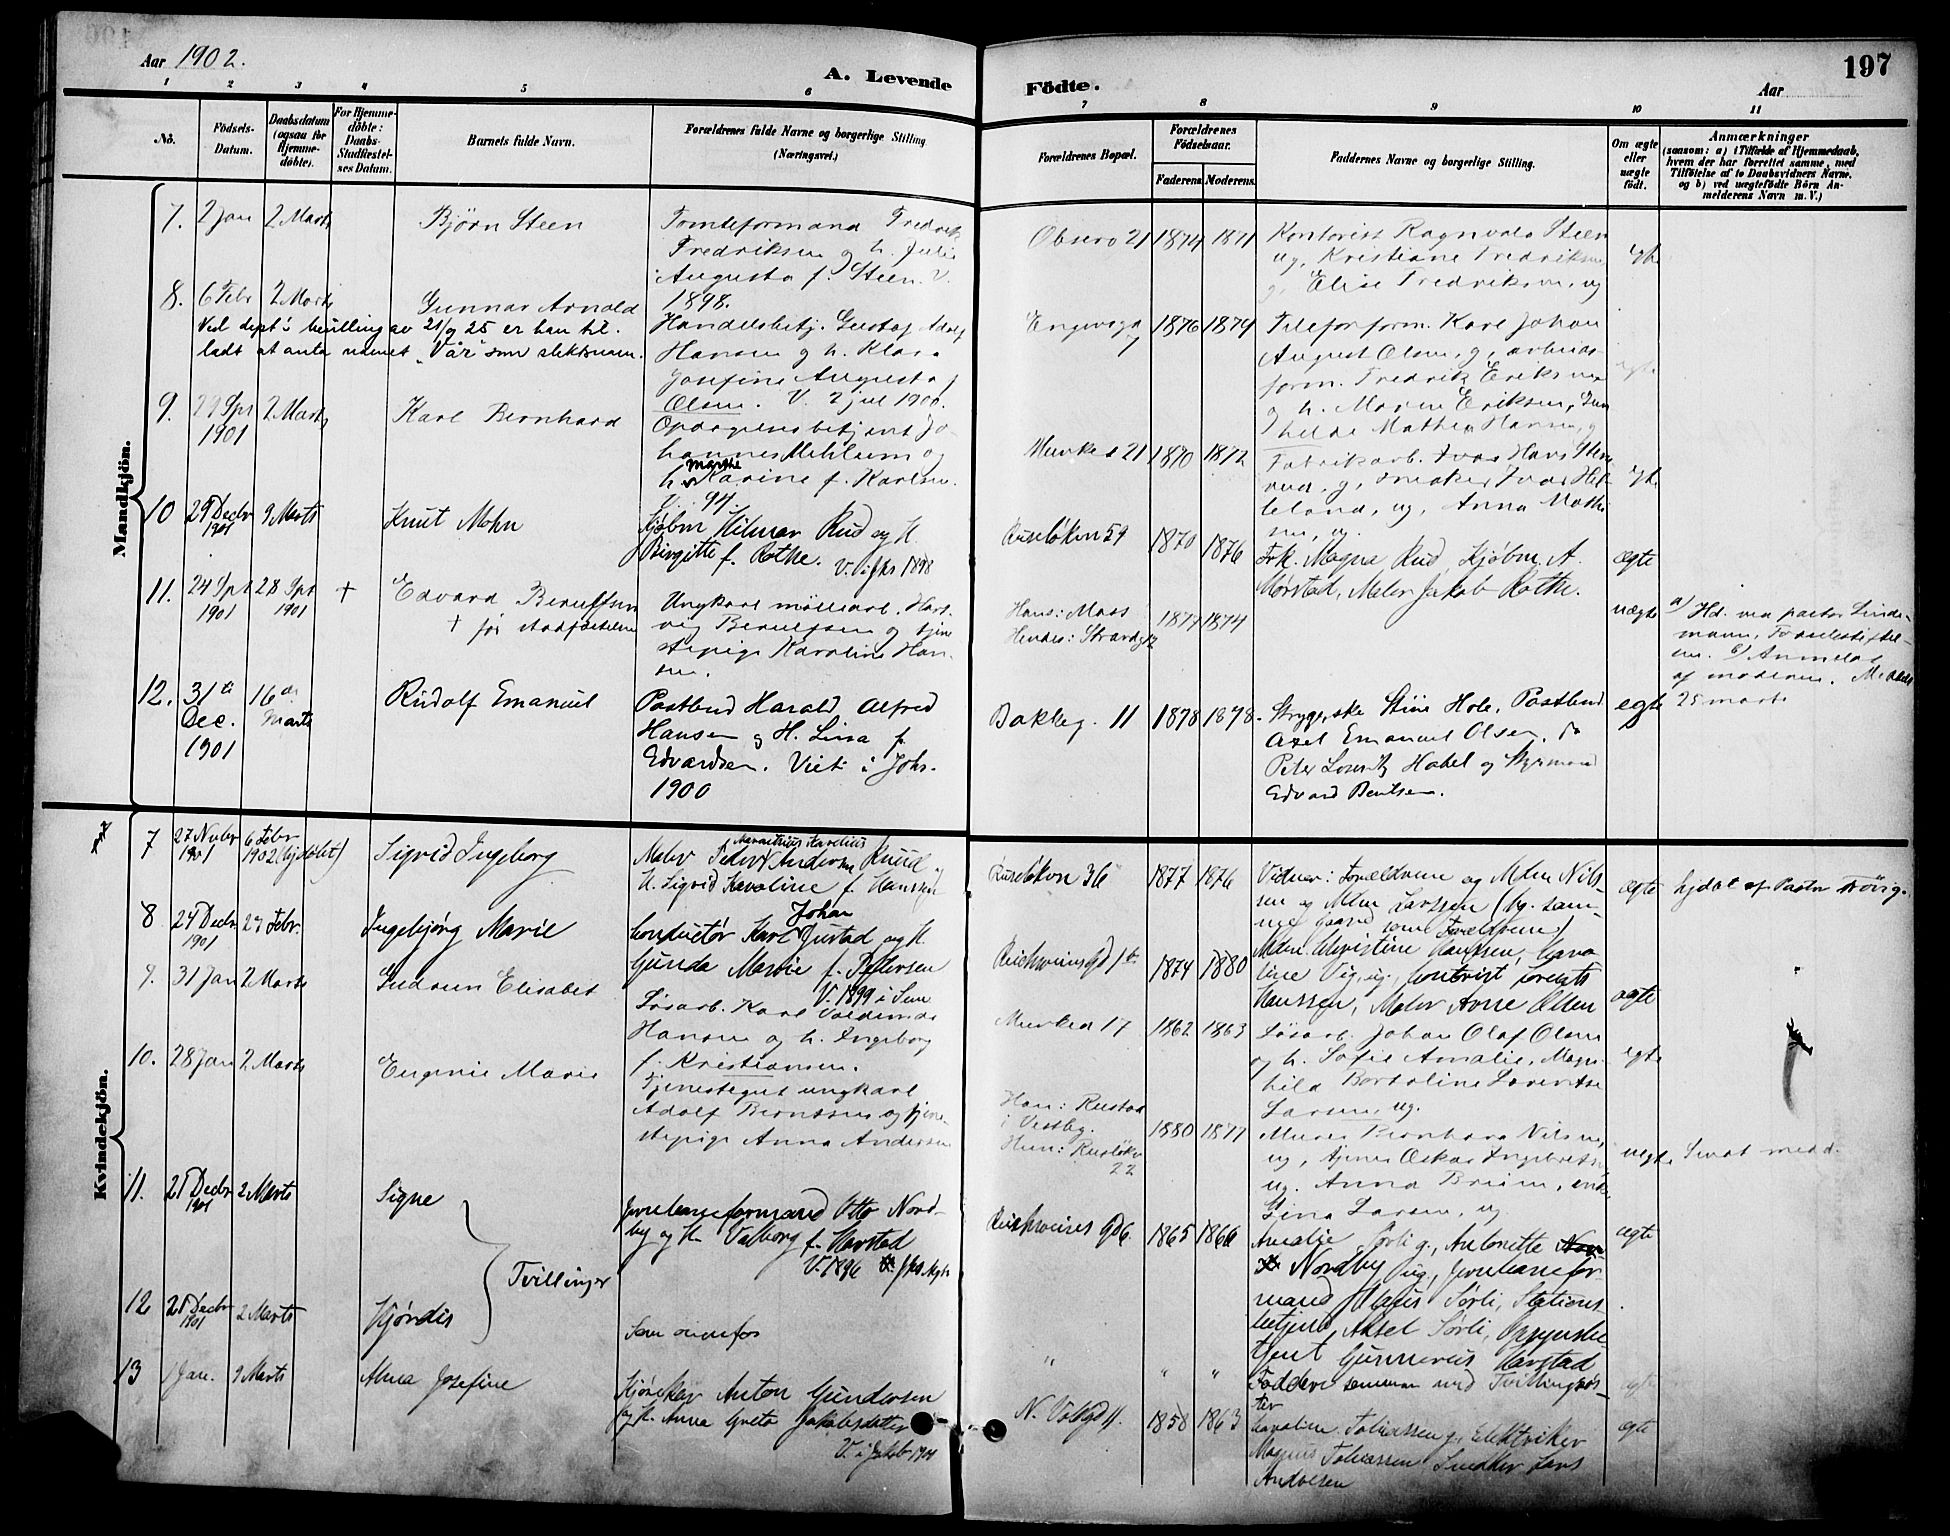 Aar 1902.
A. Levende
Födte.
197
Aar
1 2 3 4 5 6 7 8 9 10 11
No.
Födsels-
Datum.
Daabsdatum
(ogsaa for
Hjemme-
döbte).
For Hjemme-
döbte:
Daabs-
Stadfæstel-
ses Datum.
Barnets fulde Navn.
Forældrenes fulde Navne og borgerlige Stilling
(Næringsvei.)
Forældrenes Bopæl.
Forældrenes
Födselsaar.
Faderens Moderens.
Faddernes Navne og borgerlige Stilling.
Om ægte
eller
uægte
födt.
Anmærkninger
(saasom: a) i Tilfælde af Hjemmedaab,
hvem der har forrettet samme, med
Tilföielse af to Daabsvidners Navne,
og b) ved uægtefödte Börn An-
melderens Navn m. V.)
Mandkjön.
7. 2 Jan 2 Marts Bjørn Steen
Tomteformand Fredrik
Fredriksen og h. Julie
Augusta f. Steen. V.
1898.
Observ 21 1874 1871
Kontorist Ragnvald Steen
ug, Kristiane Fredriksen
g, Elise Fredriksen, ug
egte
8. 6 Febr 2 Marts Gunnar Arnold
Ved dept's bevilling av 21/9 25 er han til-
ladt at anta navnet "Vår" som slektsnavn.
Handelsbetj. Gustaf Adolf
Hansen g h. Klara
Josefine Augusta f
Olsen. V. 2 jul 1900.
Engvegd 7 1876 1879
Telefonform. Karl Johan
August Olsen, g, arbeids-
form. Fredrik Eriksen
g h. Maren Eriksen,
hilda Mathea Hansen, g
egte
9. 29 Spt 1901 2 Marts Karl Bernhard
Opdagelsesbetjent Jo-
hannes Mehlum og
h. Marthe Karine f. Karlsen.
V. 94.
Munked 21 1870 1872
Fabrikarb. Hans
g, snekker Ivar Hel-
leland, ug, Anna Mathi
sen, ug.
egte
10 29 Decbr 1901 9 Marts Knut Mohn
Kjøbm. Hilmar Rud og H.
Birgitte f. Rothe. V. i Jks 1898
Ruseløkvn 59 1870 1876
Frk. Magna Rud, Kjøbm. A.
Mørstad, Maler Jakob Rothe.
ægte
11. 24 Spt 1901 28 Spt 1901 + Edvard Berulfsen
+ før stadfæstelsen
Ungkarl møllearb. Hart-
vig Berulfsen og tjene
stepige Karoline Han-
sen.
Hans: Moss
Hendes: Strandg 12
1877 1874
uægte
a) Hd. ved pastor Linde-
mann, Fødselsstiftel-
sen. b) Anmeldt
af moderen.
25 marts
12. 31te Dec. 1901 16de Marts Rudolf Emanuel
Postbud Harald Alfred
Hansen og H. Lina f.
Edvardsen. Viet i Johs.
1900
Bakkeg. 11 1878 1878.
Strygerske Stine Hole, Postbud
Axel Emanuel Olsen, do
Peter Louritz Habel og Styrmand
Edvard Bentsen.
egte
Kvindekjön.
7 27 Novbr 1901 6 Febr 1902 (hjdøbt) Sigrid Ingeborg
Maler Peder Marentius Karelius Andersen Ruud og
H. Sigrid Karoline f. Hanssen
Ruseløkvn 36 1877 1876
Vidner: Forældrene og Mdm Nils-
sen og Mdm Larssen (by. sam-
me gaard som Forældrene)
ægte hjdøbt af Pastor
8 24 Decbr 1901 27 Febr. Ingebjörg Marie
Conductör Karl Johan Justad og H.
Gunda Marie f. Pettersen
V. 1899 i Sem
1874 1880
Mdm. Christine Hanssen, Caro-
line Vig, ug. Contorist Lorents
Hanssen, Maler Arne Olsen
ægte
9. 31 Jan 2 Marts Gudrun Elisabet
Løsarb. Karl Valdemar
Hansen og h. Ingeborg
f. Kristiansen.
Munked 17 1862 1863
Løsarb. Johan Olaf Olsen
og h. Sofie Amalie, Magn-
hild Bertoline Lorentse
Larsen, ug.
egte
10. 28 Jan 2 Marts Eugenie Marie
Tjenestegut ungkarl
Adolf Berntsen og tjene
stepige Anna Andersen
Han: Rustad
i Vestby.
Hun: Ruseløkv
22
1880 1877
Murer Bernhard Nilsen,
ug, Oskar Ingebretsen
ug. Anna Briem, enke
Lina Larsen, ug
uegte
11. 25 Decbr 1901 2 Marts Signe
Tvillinger
Jernbaneformand Otto Nord-
by og H. Valborg f. Harstad
V. 1896
1865 1866
Amalie Sørli g., Antonette
Nordby ug., Jernbanefor-
mand Sørli, Stations-
betjent Aksel Sørli,
tjent Gunnerius Harstad
ægte
12 25 Decbr 1901 2 Marts Hjördis
Som ovenfor
" " "
Faddere sammen med Tvillingsøs-
ter
egte
13 1 Jan. 9 Marts Alma Josefine
Kjørekar Anton Gundersen
og H. Anna Greta Jakobsdatter
V. i Jakob 1901
N. Voldgd 11. 1858 1863
Caroline Tobiassen g, Elektriker
Magnus Tobiassen Snedker Lars
Andresen
ægte